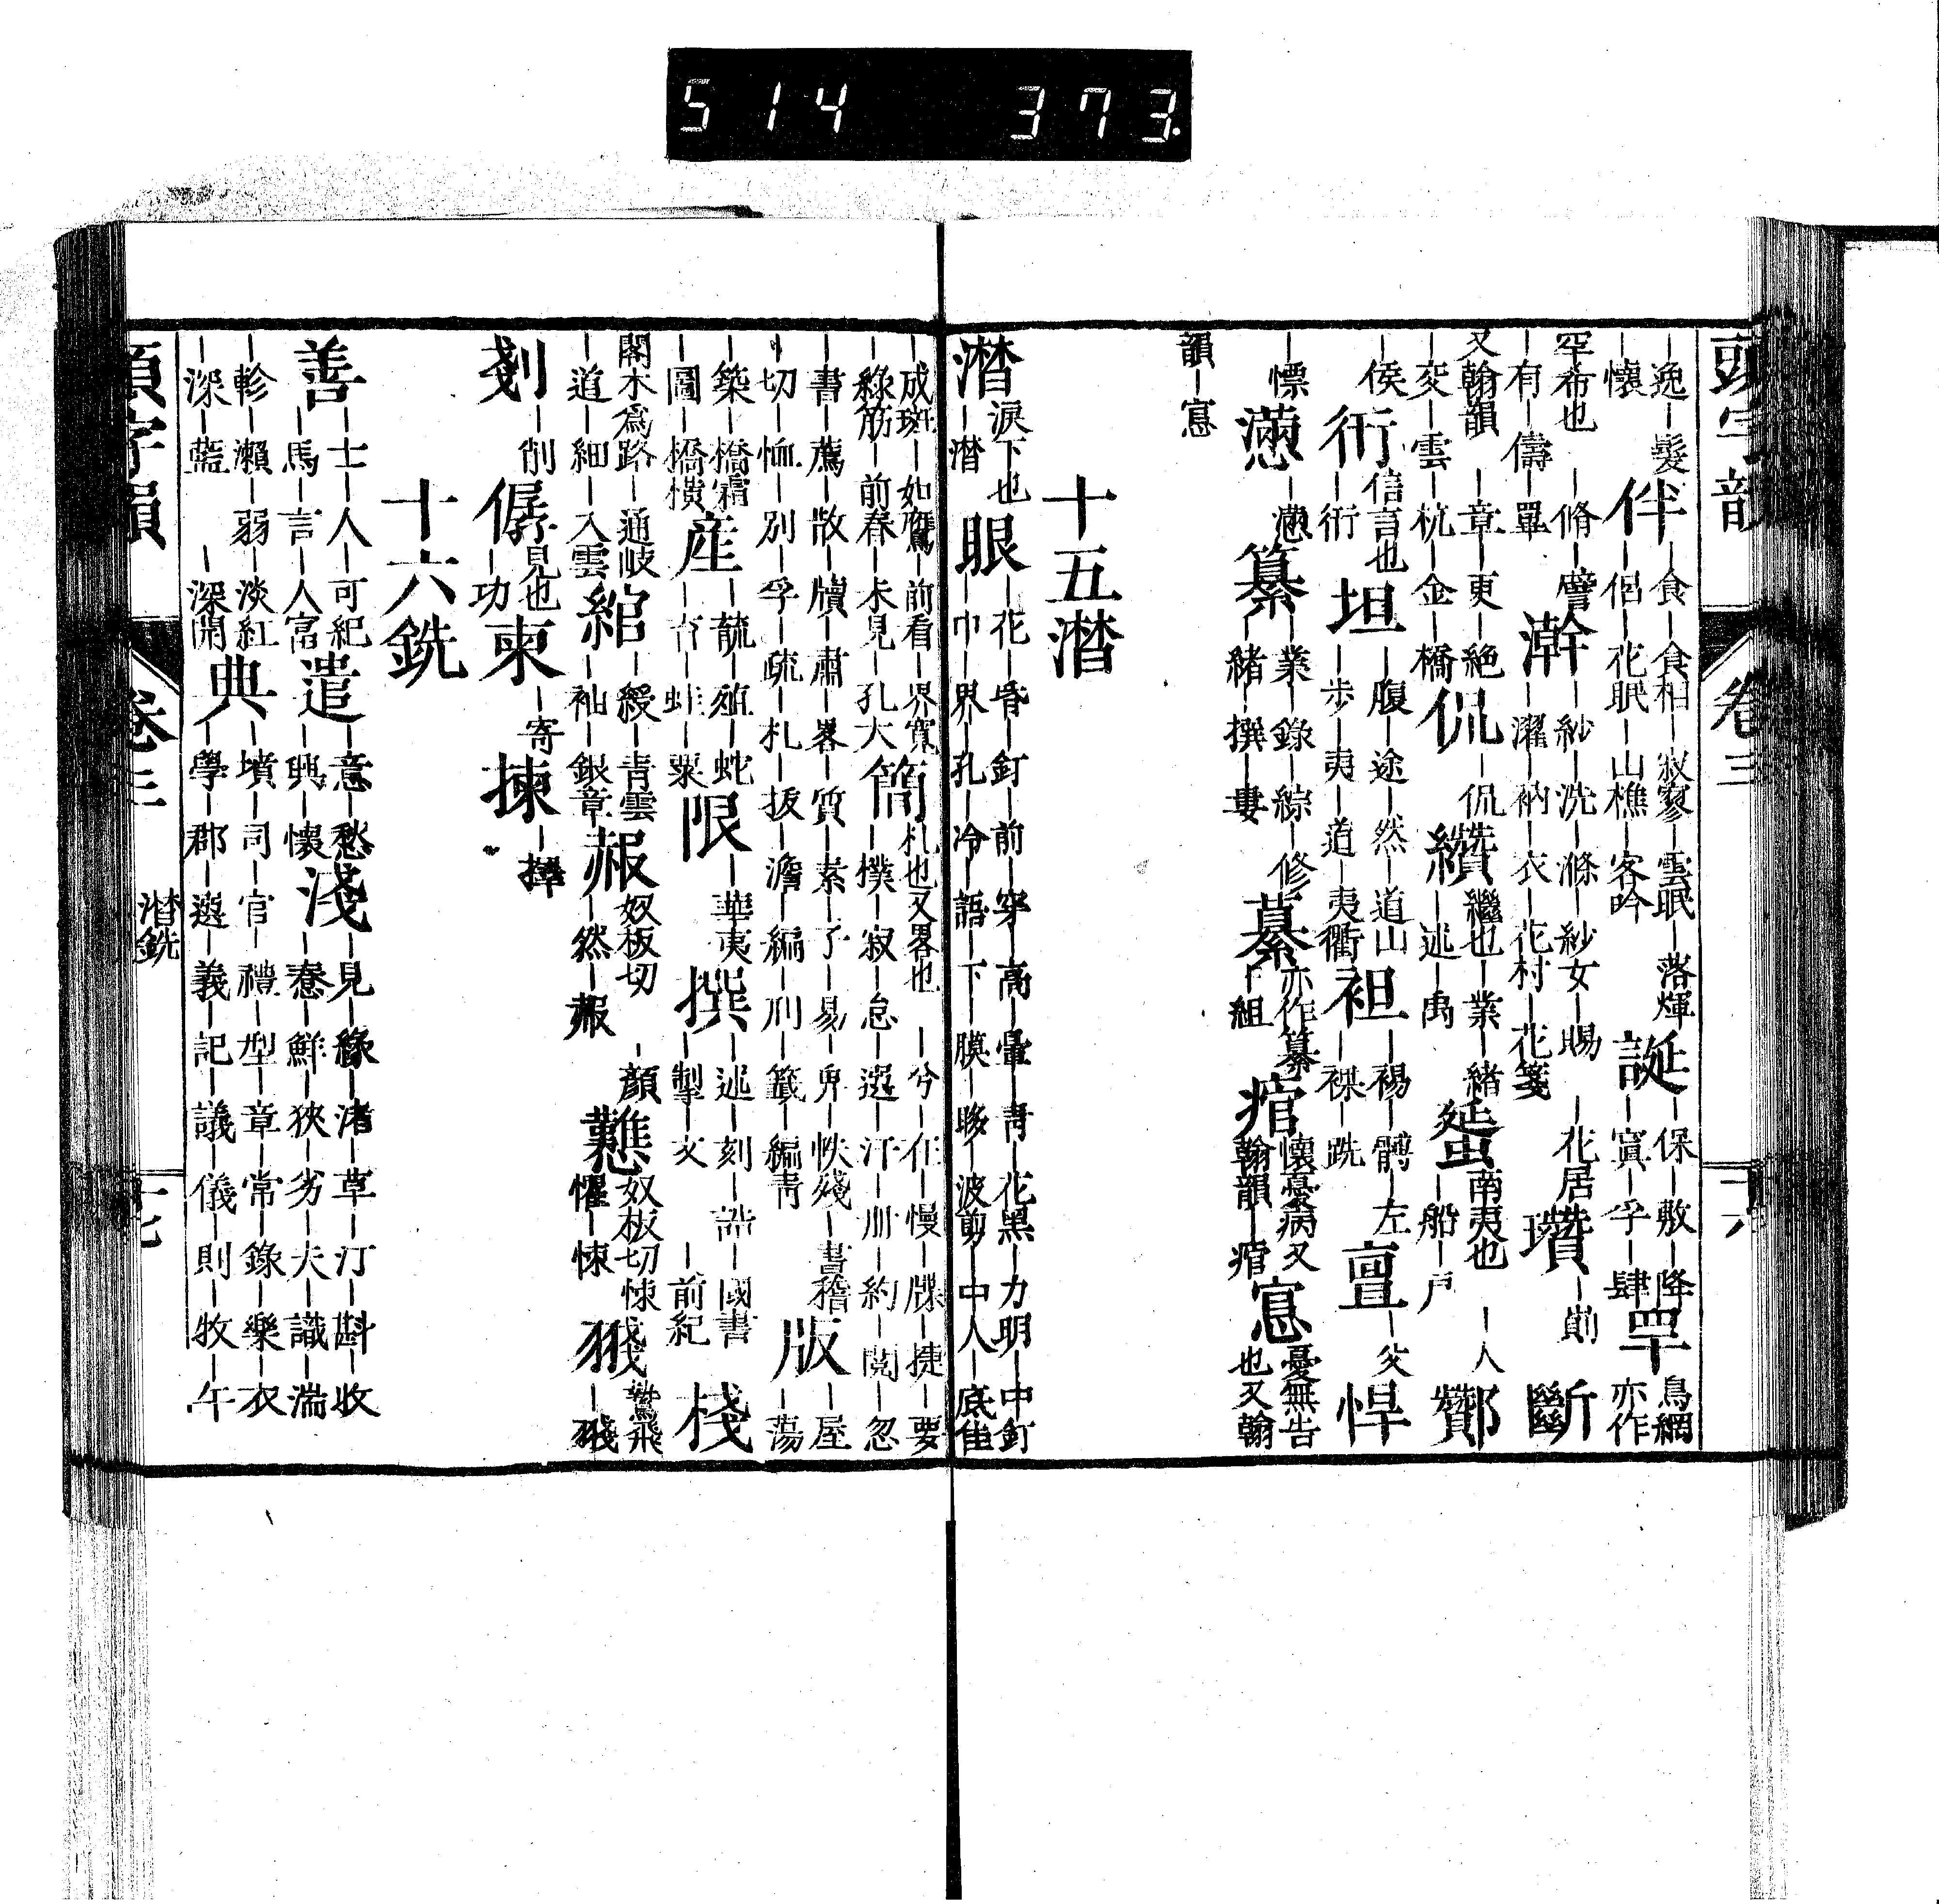 514 373.
頭字韻 卷三 十六
逸｜髮
懷
伴｜食｜食相｜寂寥｜雲眠｜落煇
｜侶｜花眠｜山樵｜客吟
誕｜保｜敷｜降
｜寘｜孚｜肆
罕鳥網亦作
罕希也｜脩｜譬
｜有｜儔｜單
澣｜紗｜洗｜滌｜紗女｜賜｜花居
｜濯｜衲｜衣｜花村｜花箋
瓚｜剬
斷
又翰韻｜章｜更｜絕
｜交｜雲｜杭｜金｜橋
侃｜侃
纘繼也｜業｜緒
｜述｜禹
蜑南夷也｜人
｜船｜戶
酇
｜侯
衎信言也
｜衎
坦｜腹｜途｜然｜道山
｜步｜夷｜道｜夷衢
袒｜裼｜髆｜左
｜裸｜跣
亶｜父
悍
｜慓
懣｜懣
纂｜業｜錄｜綜｜修
｜緒｜撰｜婁
繤亦作纂
｜組
痯懷憂病又
翰韻｜痯
悹憂無告
也又翰
韻｜悹
十五潸
潸淚下也
｜潸
眼｜花｜昏｜釘｜前｜穿｜高｜暈｜青｜花黑｜力明｜中釘
｜巾｜界｜孔｜冷｜語｜下｜膜｜眵｜波剪｜中人｜底隹
｜成斑｜如鷹｜前看｜界寬
｜綠筋｜前春｜未見｜孔大
簡札也又畧也｜兮｜在｜慢｜牒｜捷｜要
｜樸｜寂｜怠｜選｜汗｜冊｜約｜閱｜忽
｜書｜薦｜散｜牘｜肅｜畧｜質｜素｜子｜易｜畀｜帙殘｜書稽
｜切｜恤｜別｜孚｜疏｜札｜扳｜澹｜編｜刊｜籖｜編靑
版｜屋
｜蕩
｜築｜橋霜
｜圖｜橋橫
産｜毓｜殖｜蛇
｜吉｜蛙｜粟
限｜華夷
撰｜述｜刻｜誥｜國書
｜製｜文｜前紀
棧
閣木爲路｜通岐
｜道｜細｜入雲
綰｜綬｜靑雲
｜袖｜銀章
赧奴板切｜顔
｜然｜赧
戁奴板切悚
懼｜悚
㺜驚飛
剗｜削
僝見也
｜功
柬｜寄
揀｜擇
十六銑
善｜士｜人｜可紀
｜馬｜言｜人富
遣｜意｜愁
｜興｜懷
淺｜見｜綠｜渚｜草｜汀｜斟｜收
｜春｜鮮｜狹｜劣｜夫｜識｜湍
｜軫｜瀨｜弱｜淡紅
｜深｜藍｜深開
典｜墳｜司｜官｜禮｜型｜章｜常｜錄｜樂｜衣
｜學｜郡｜選｜義｜記｜議｜儀｜則｜牧｜午
頭字韻 卷三 潸銑 十七